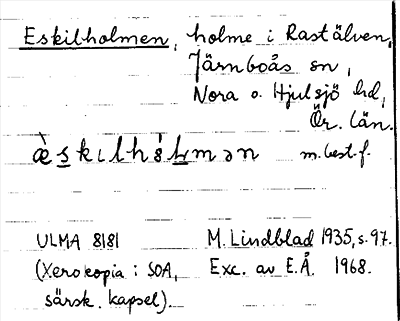 Eskilholmen, holme i Rastälven,
Järnboås sn,
Nora o. Hjulsjö hd,
Ör. län.
m. best. f.
ULMA 8181 M. Lindblad 1935, s. 97.
(Xerokopia i SOA, Exc. av E.Å. 1968.
särsk. kapsel).